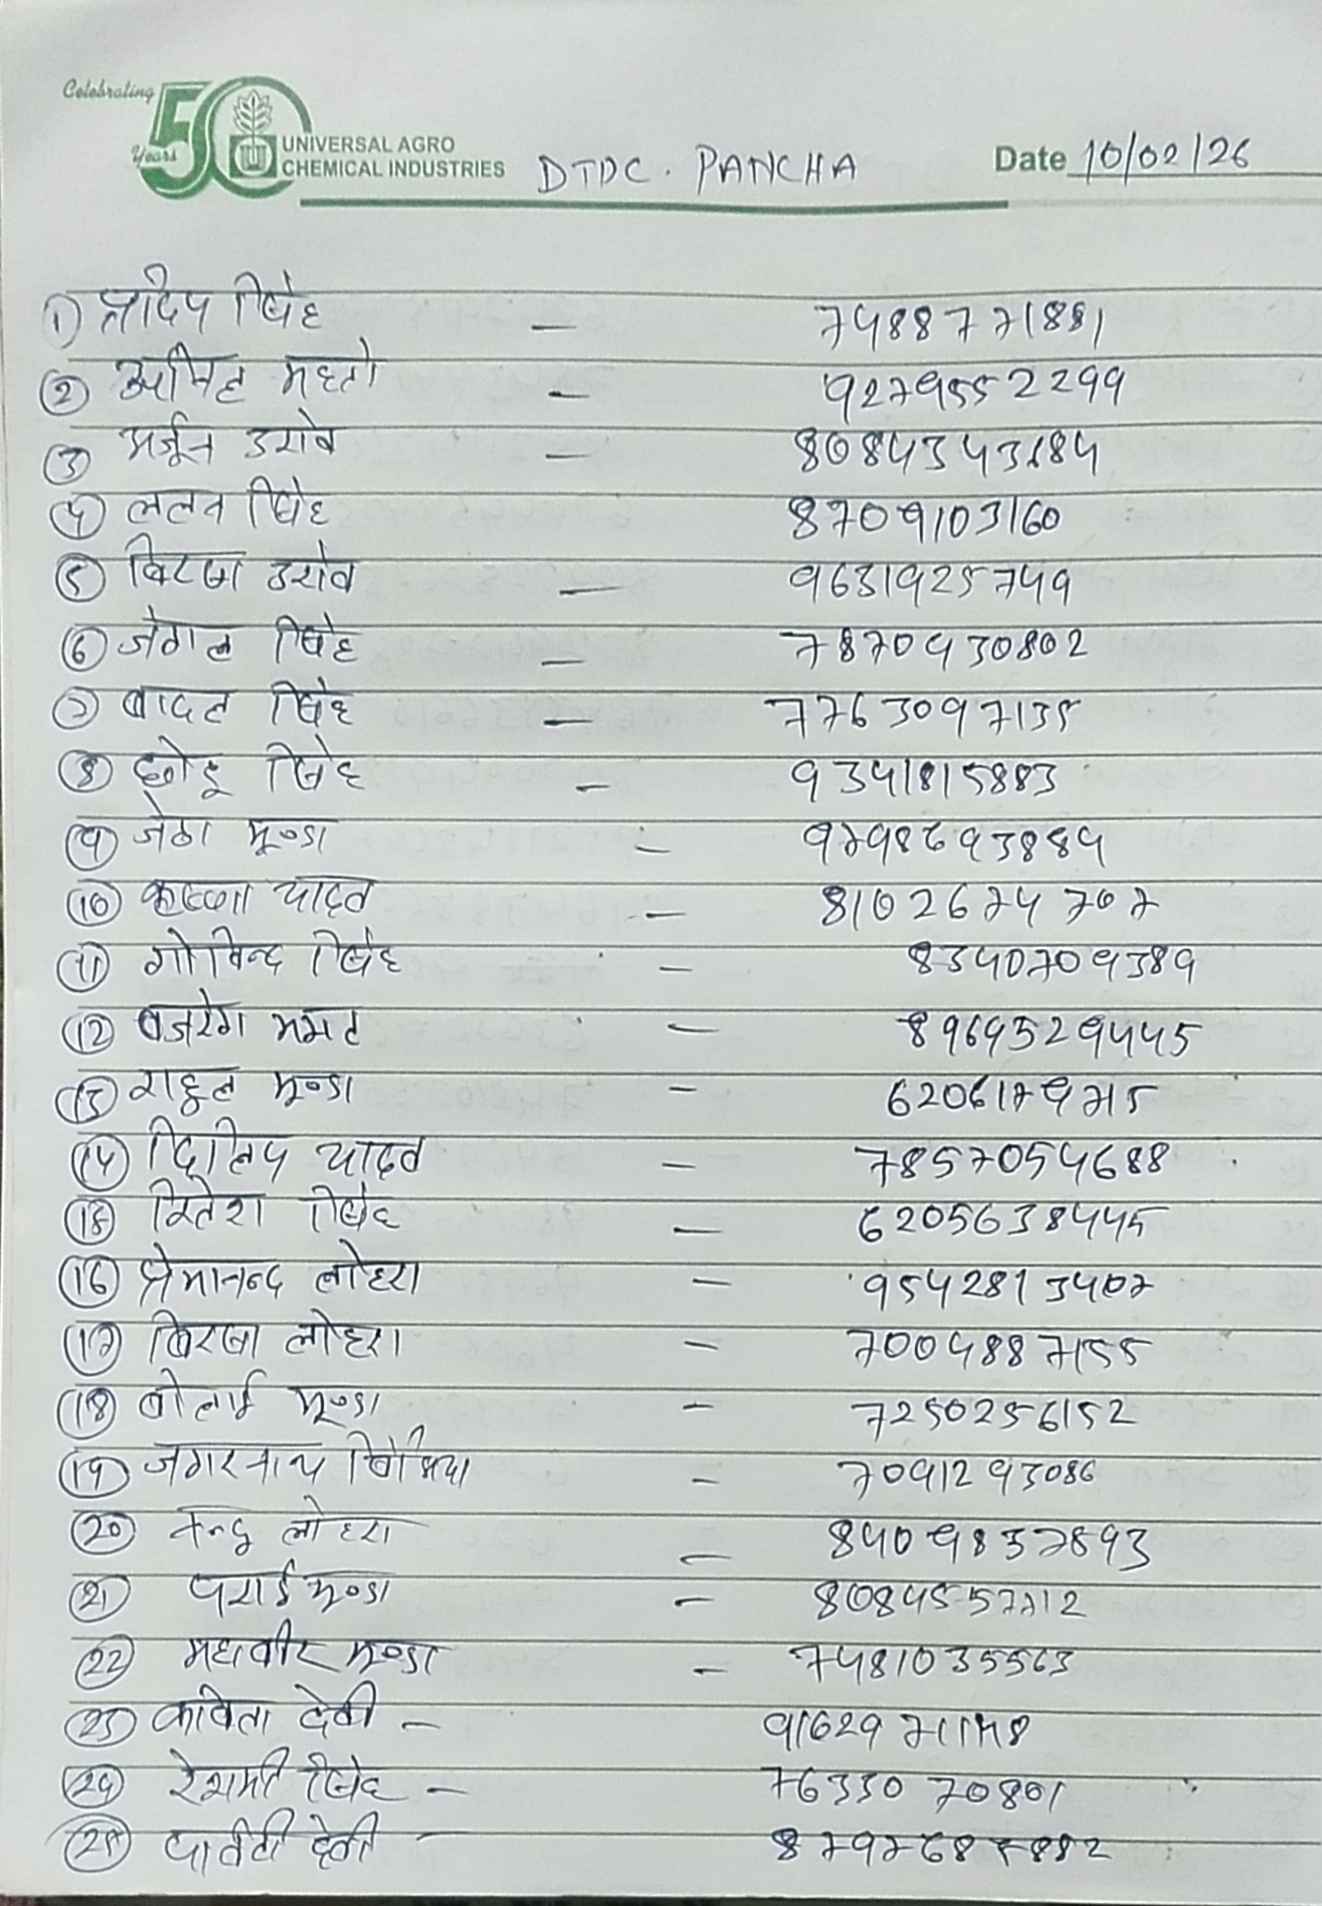 Celebrating
50
Years
UNIVERSAL AGRO
CHEMICAL INDUSTRIES
DTDC. PANCHA
Date 10/02/26
1) प्रदिप सिंह - 7488771881
2 अमित महतो - 9279552299
3 अर्जून उरांव - 8084343184
4 ललन सिंह 8709103160
5 बिरसा उरांव - 9631925749
6 जंगल सिंह - 7870930802
7 बादल सिंह - 7763097135
8 छोटू सिंह - 9341815883
9 जेठा मूण्डा - 9798693884
10 कृष्णा यादव - 8102674707
11 गोविन्द सिंह - 8340709389
12 बजरंग - 8969529445
13 राहुल मूण्डा - 6206179715
14 दिलिप यादव - 7857054688
15 रितेश सिंह - 6205638445
16 प्रेमानन्द लोहरा - 9542813407
17 बिरसा लोहरा - 7004887155
18 बोलाई मूण्डा - 7250256152
19 जगरनाथ - 7091293086
20 नन्दु लोहरा - 8409837893
21 मूण्डा - 8084557712
22 महावीर मूण्डा - 7481035563
23 कविता देवी -
24 रेशमी सिंह - 7633070801
25 पार्वती देवी -